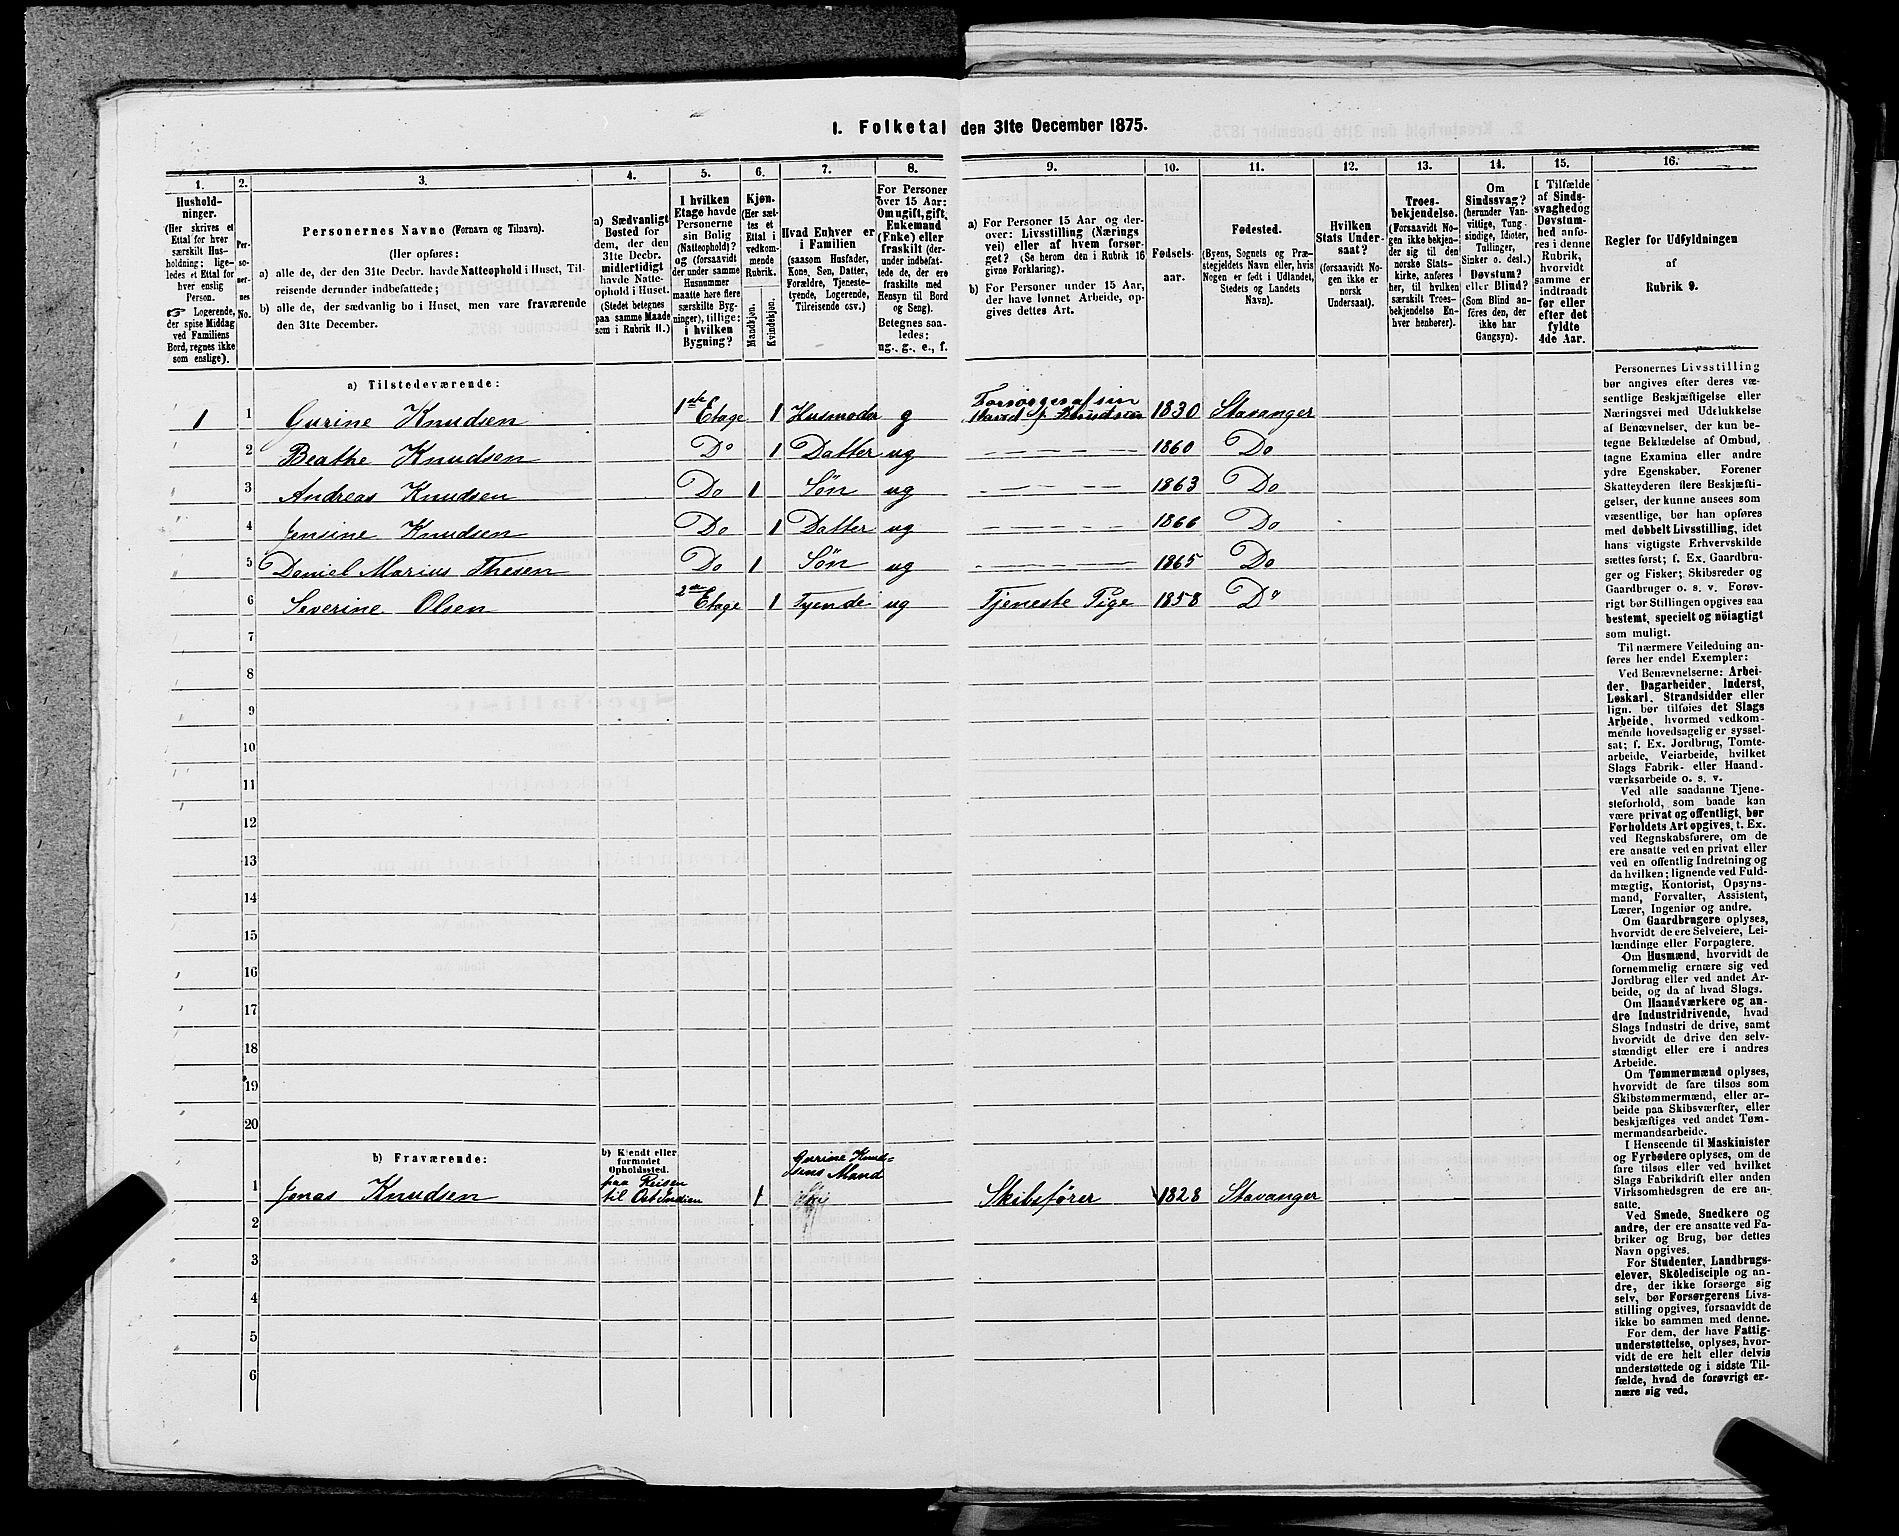 1. Folketal den 31te December 1875.
1. 2. 3. 4. 5. 6. 7. 8. 9. 10. 11. 12. 13. 14. 15. 16.
Hushold-
ninger.
(Her skrives et
Ettal for hver
særskilt Hus-
holdning; lige-
ledes et Ettal for
hver enslig
Person.
☞ Logerende,
der spise Middag
ved Familiens
Bord, regnes ikke
som enslige).
Per-
so-
ner-
nes
No.
Personernes Navne (Fornavn og Tilnavn).
(Her opføres:
a) alle de, der den 31te Decbr. havde Natteophold i Huset, Til-
reisende derunder indbefattede;
b) alle de, der sædvanlig bo i Huset, men vare fraværende
den 31te December.
a) Sædvanligt
Bosted for
dem, der den
31te Decbr.
midlertidigt
havde Natte-
ophold i Huset.
(Stedet betegnes
paa samme Maade
som i Rubrik 11.)
I hvilken
Etage havde
Personerne
sin Bolig
(Natteophold)?
og (forsaavidt
der under samme
Husnummer
maatte høre flere
særskilte Byg-
ninger), tillige:
i hvilken
Bygning?
Kjøn.
(Her sæt-
tes et
Ettal i
vedkom-
mende
Rubrik.
Mandkjøn.
Kvindekjøn.
Hvad Enhver er
i Familien
(saasom Husfader,
Kone, Søn, Datter,
Forældre, Tjeneste-
tyende, Logerende,
Tilreisende osv.)
For Personer
over 15 Aar:
Om ugift, gift,
Enkemand
(Enke) eller
fraskilt (der-
under indbefat-
tede de, der ere
fraskilte med
Hensyn til Bord
og Seng).
Betegnes saa-
ledes:
ug., g., e., f.
a) For Personer 15 Aar og der-
over: Livsstilling (Nærings
vei) eller af hvem forsør-
get? (Se herom den i Rubrik 16
givne Forklaring).
b) For Personer under 15 Aar,
der have lønnet Arbeide, op-
gives dettes Art.
Fødsels-
aar.
Fødested.
(Byens, Sognets og Præ-
stegjeldets Navn eller, hvis
Nogen er født i Udlandet,
Stedets og Landets
Navn).
Hvilken
Stats Under-
saat?
(forsaavidt No-
gen ikke er
norsk
Undersaat).
Troes-
bekjendelse.
(Forsaavidt No-
gen ikke bekjen-
der sig til den
norske Stats-
kirke, anføres
her, til hvilken
særskilt Troes-
bekjendelse En-
hver henhører).
Om
Sindssvag?
(herunder Van-
vittige, Tung
sindige, Idioter,
Tullinger,
Sinker o. desl.)
Døvstum?
eller Blind?
(Som Blind an-
føres den, der
ikke har
Gangsyn).
I Tilfælde
af Sinds-
svaghed og
Døvstum-
hed anfø-
res i denne
Rubrik,
hvorvidt
samme er
indtraadt
før eller
efter det
fyldte
4de Aar.
Regler for Udfyldningen
af
Rubrik 9.
a) Tilstedeværende:
1 1 Gurine Knudsen 1ste Etage 1 Husmoder g Forsørges af sin Mand J. Knudsen 1830 Stavanger
2 Beathe Knudsen Do 1 Datter ug 1860 Do
3 Andreas Knudsen Do 1 Søn ug 1863 Do
4 Jensine Knudsen Do 1 Datter ug 1866 Do
5 Daniel Marius Thesen Do 1 Søn ug 1865 Do
6 Severine Olsen 2den Etage 1 Tyende ug Tjeneste Pige 1858 Do
7
8
9
10
11
12
13
14
15
16
17
18
19
20
b) Fraværende:
b) Kjendt eller
formodet
Opholdssted.
1 Jonas Knudsen paa Reisen til Ost Indien 1 Gurine Knudsens Mand Skibsfører 1828 Stavanger
2
3
4
5
6
Personernes Livsstilling
bør angives efter deres væ-
sentlige Beskjæftigelse eller
Næringsvei med Udelukkelse
af Benævnelser, der kun be-
tegne Beklædelse af Ombud,
tagne Examina eller andre
ydre Egenskaber. Forener
Skatteyderen flere Beskjæfti-
gelser, der kunne ansees som
væsentlige, bør han opføres
med dobbelt Livsstilling, idet
hans vigtigste Erhvervskilde
sættes først; f. Ex. Gaardbru-
ger og Fisker; Skibsreder og
Gaardbruger o. s. v. Forøv-
rigt bør Stillingen opgives saa
bestemt, specielt og nöiagtigt
som muligt.
Til nærmere Veiledning an-
føres her endel Exempler:
Ved Benævnelserne: Arbei-
der, Dagarbeider, Inderst,
Løskarl, Strandsidder eller
lign. bør tilføies det Slags
Arbeide, hvormed vedkom-
mende hovedsagelig er syssel-
sat; f. Ex. Jordbrug, Tomte-
arbeide, Veiarbeide, hvilket
Slags Fabrik- eller Haand-
værksarbeide o. s. v.
Ved alle saadanne Tjene-
steforhold, som baade kan
være privat og offentligt, bør
Forholdets Art opgives, t. Ex.
ved Regnskabsførere, om de
ere ansatte ved en privat eller
ved en offentlig Indretning og
da hvilken; lignende ved Fuld-
mægtig, Kontorist, Opsyns-
mand, Forvalter, Assistent,
Lærer, Ingeniør og andre.
Om Gaardbrugere oplyses,
hvorvidt de ere Selveiere, Lei-
lændinge eller Forpagtere.
Om Husmænd, hvorvidt de
fornemmelig ernære sig ved
Jordbrug eller ved andet Ar-
beide, og da af hvad Slags.
Om Haandværkere og an-
dre Industridrivende, hvad
Slags Industri de drive, samt
hvorvidt de drive den selv-
stændigt eller ere i andres
Arbeide.
Om Tømmermænd oplyses,
hvorvidt de fare tilsøs som
Skibstømmermænd, eller ar-
beide paa Skibsværfter, eller
beskjæftiges ved andet Tøm-
mermandsarbeide.
I Henseende til Maskinister
og Fyrbødere oplyses, om de
fare tilsøs eller ved hvilket
Slags Fabrikdrift eller anden
Virksomhedsgren de ere an-
satte.
Ved Smede, Snedkere og
andre, der ere ansatte ved Fa-
briker og Brug, bør dettes
Navn opgives.
For Studenter, Landbrugs-
elever, Skoledisciple og an-
dre, der ikke forsørge sig
selv, bør Forsørgerens Livs-
stilling opgives, forsaavidt de
ikke bo sammen med denne.
For dem, der have Fattig-
understøttelse, oplyses, hvor-
vidt de ere helt eller delvis
understøttede og i sidste Til-
fælde, hvad de forøvrigt er-
nære sig ved.